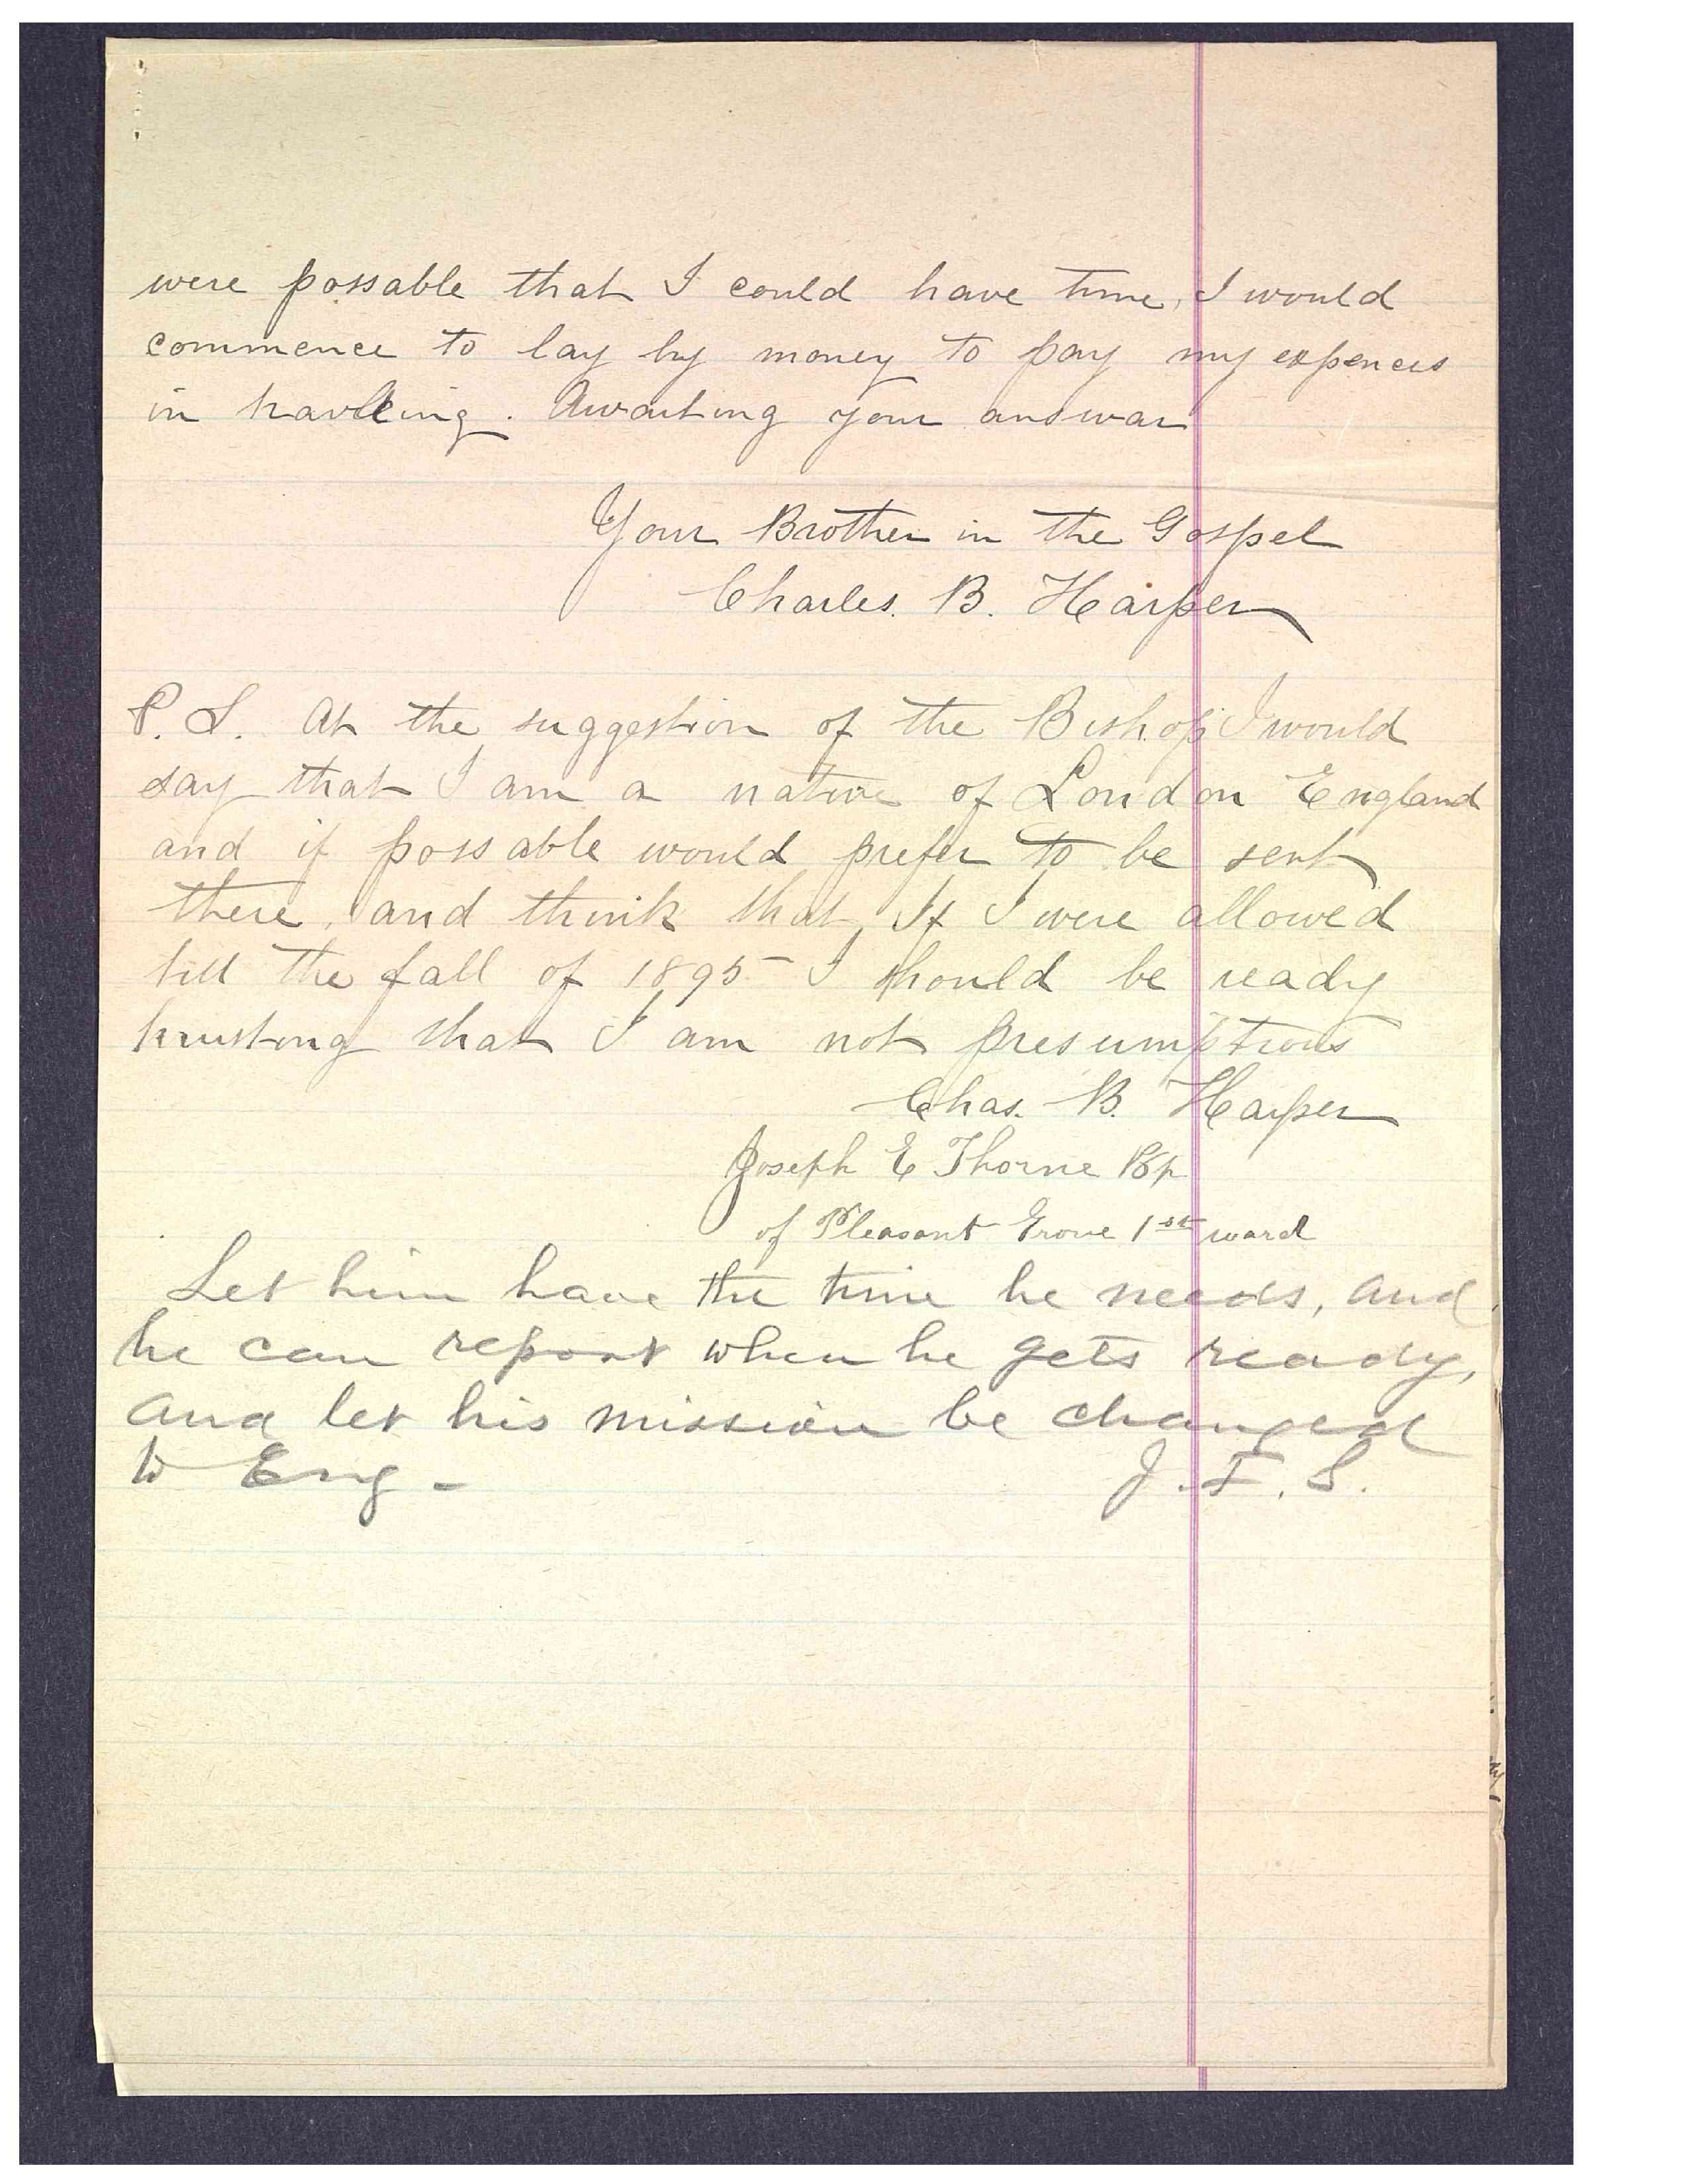 were possable that I could have time, I would
commence to lay by money to pay my expences
in travleing. Awaiting your answar
Your Brother in the Gospel
Charles. B. Harper
P.S. At the suggestion of the Bishop I would
say that I am a native of London England
and if possable would prefer to be sent
there, and think that If I were allowed
till the fall of 1895 I should be ready
trusting that I am not presumptious
Chas. B. Harper
Joseph E Thorne Bp
of Pleasant Grove 1st ward
Let him have the time he needs, and
he can report when he gets ready,
and let his mission be changed
to Eng-
J. F. S.